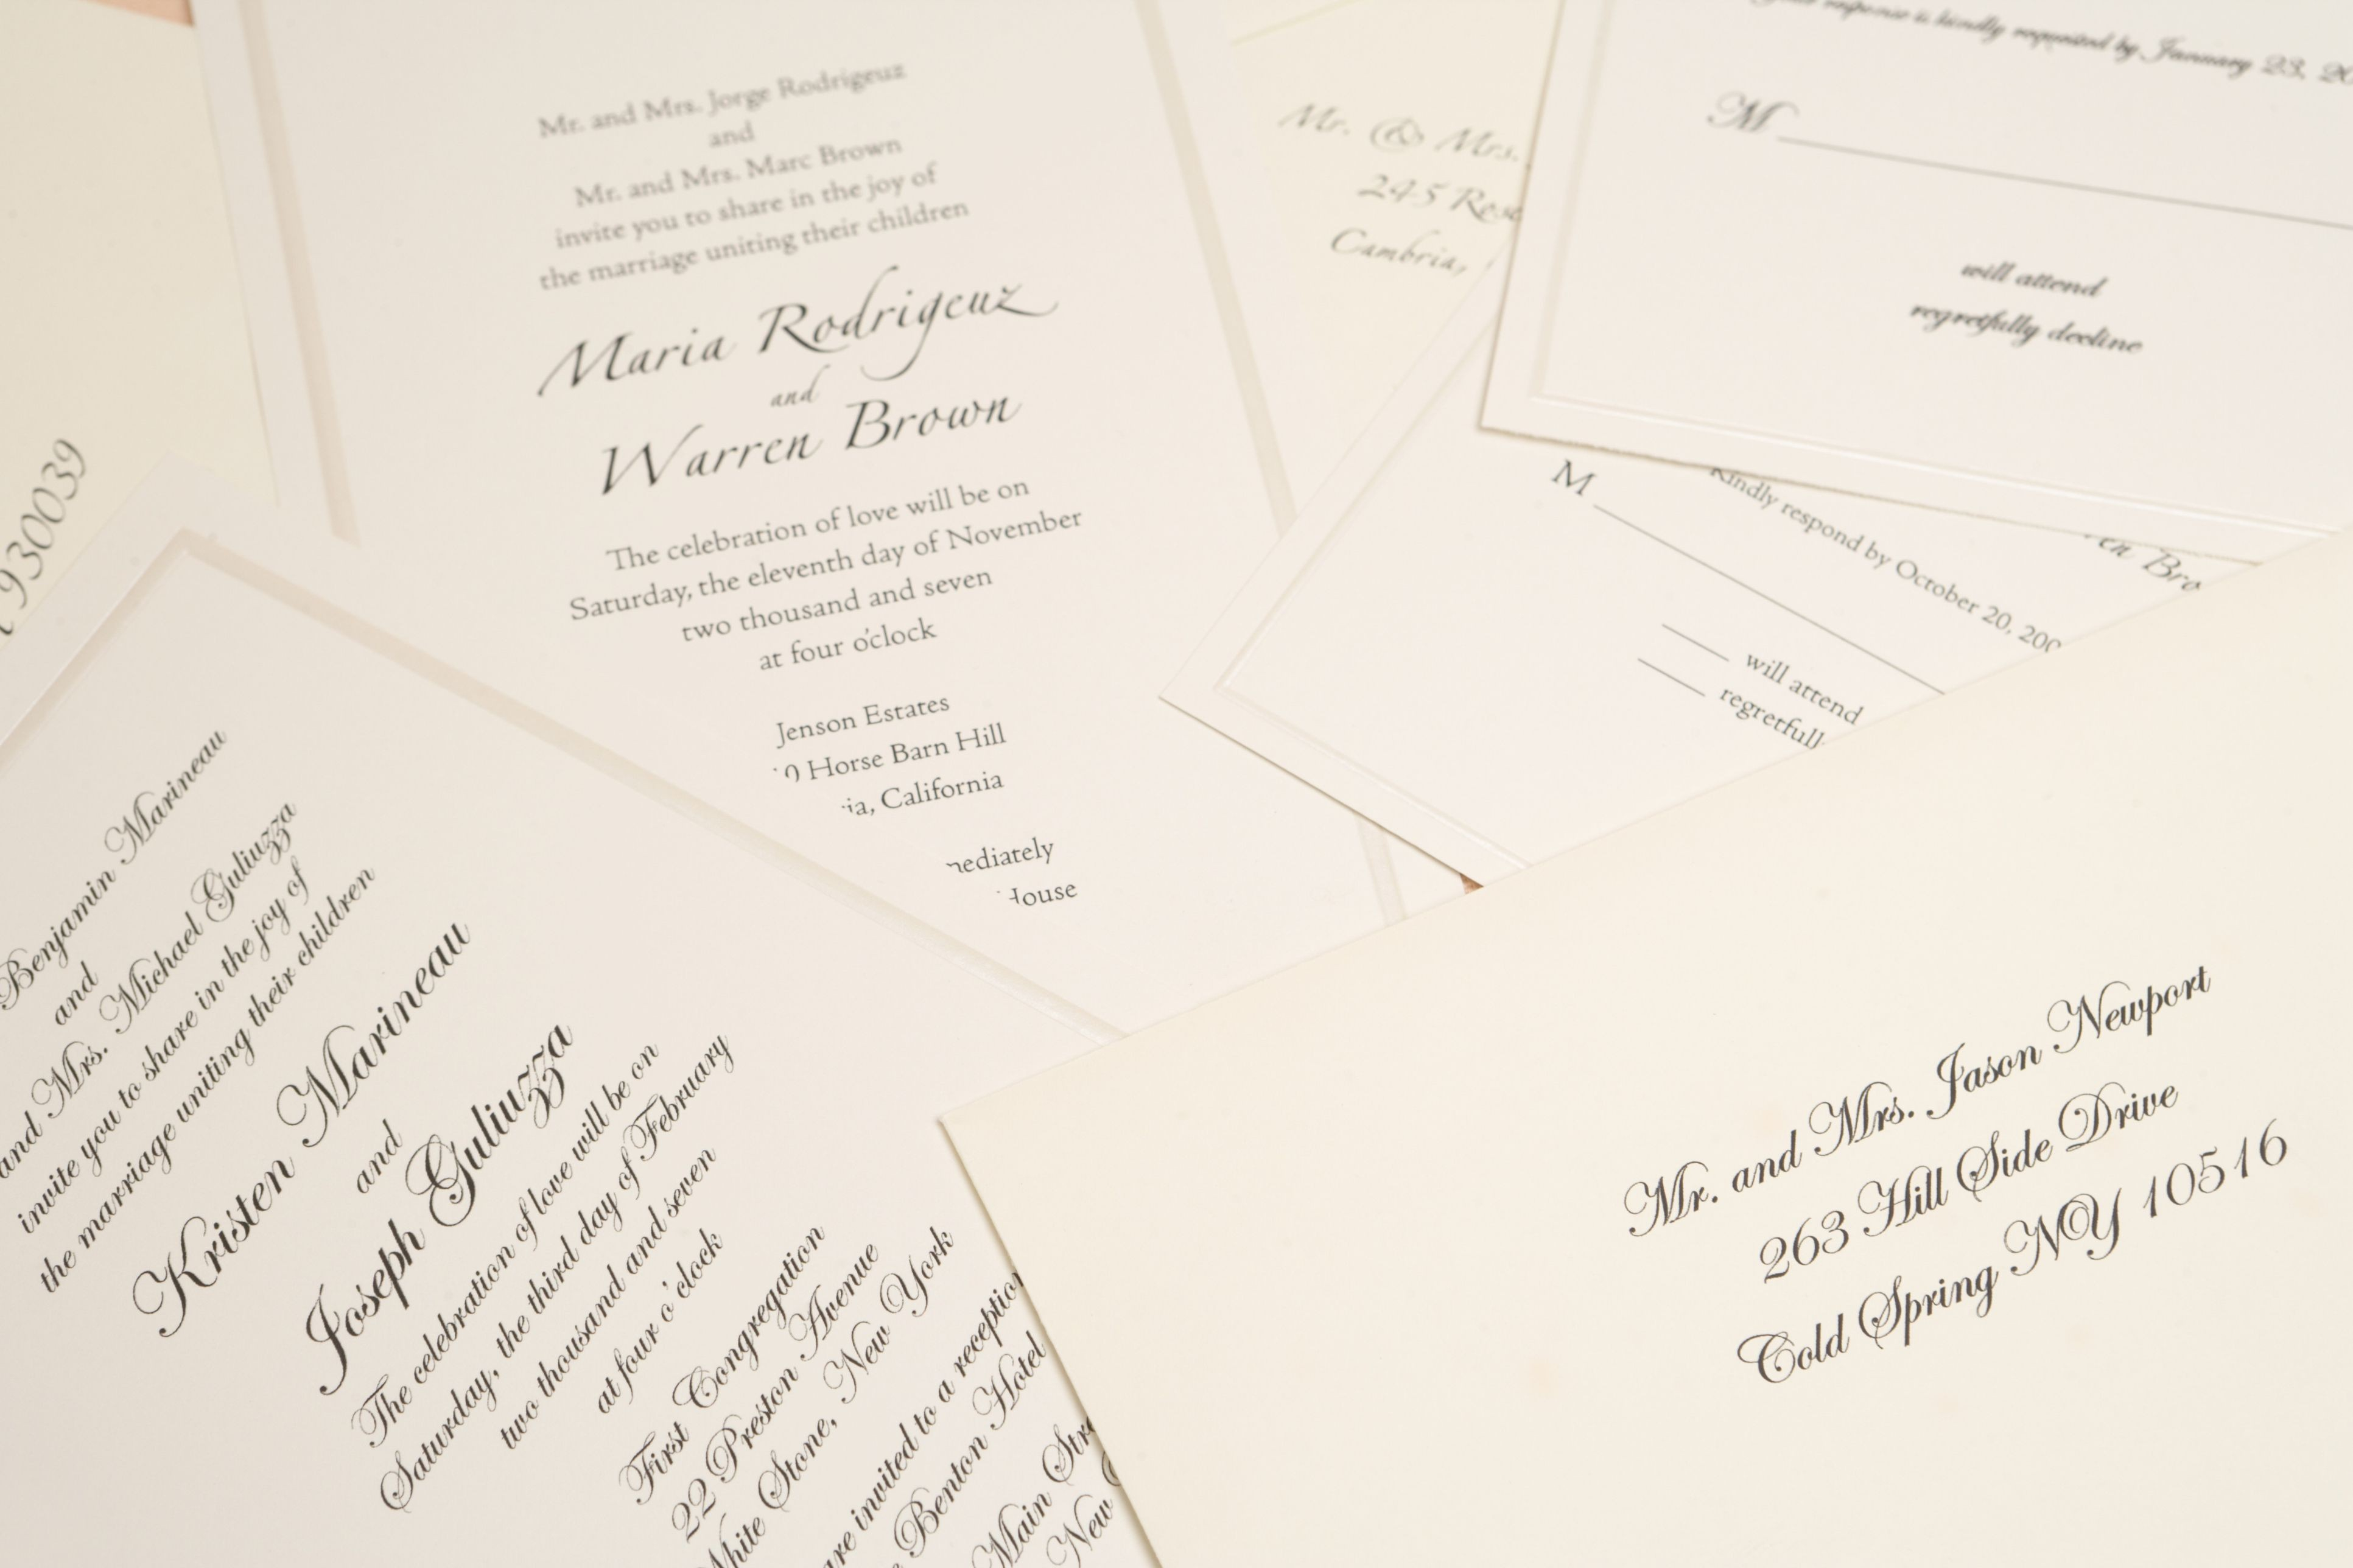 Mr. and Mrs. Jorge Rodrigeuz
and
Mr. and Mrs. Marc Brown
invite you to share in the joy of
the marriage uniting their children
Maria Rodrigeuz
and
Warren Brown
The celebration of love will be on
Saturday, the eleventh day of November
two thousand and seven
at four o'clock
Jenson Estates
0 Horse Barn Hill
ia, California
mediately
House
Mr. & Mrs.
245 Rose
Cambria,
response is kindly requested by January 23, 20
M
will attend
regretfully decline
M
Kindly respond by October 20, 200
will attend
regretfull
en Bro
930039
Benjamin Marineau
and
and Mrs. Michael Guliuzza
invite you to share in the joy of
the marriage uniting their children
Kristen Marineau
and
Joseph Guliuzza
The celebration of love will be on
Saturday, the third day of February
two thousand and seven
at four o'clock
First Congregation
22 Preston Avenue
hite Stone, New York
are invited to a reception
Benton Hotel
Main Stre
New
Mr. and Mrs. Jason Newport
263 Hill Side Drive
Cold Spring NY 10516